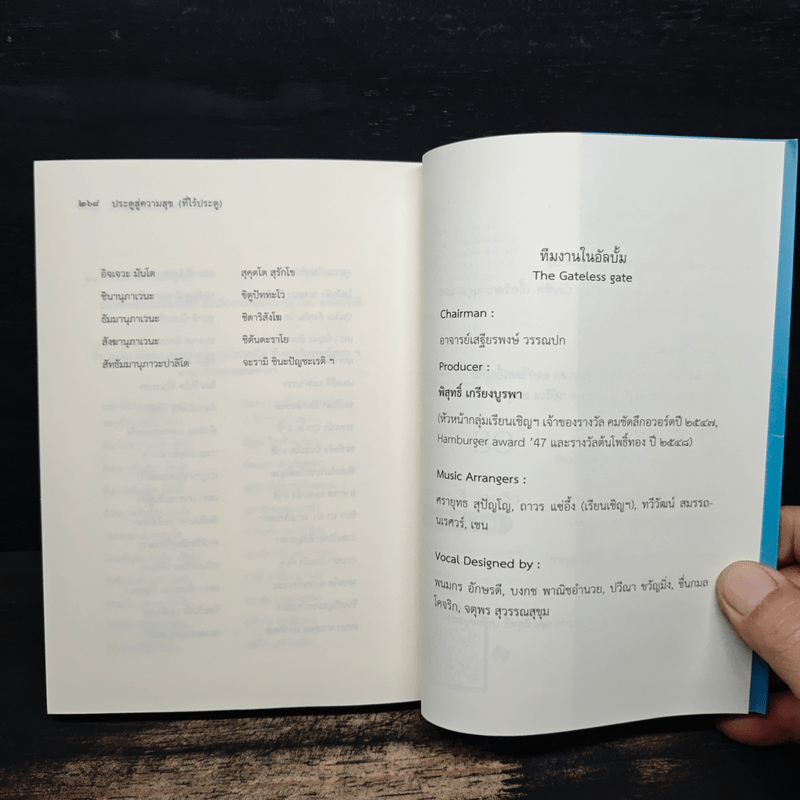 ๒๖๘ ประตูสู่ความสุข (ที่ไร้ประตู)
อิจเจวะ มันโต สุคุตโต สุรักโข
ชินานุภาเวนะ ชิตูปัททะโว
ธัมมานุภาเวนะ ชิตาริสังโฆ
สังฆานุภาเวนะ ชิตันตะราโย
สัทธัมมานุภาวะปาลิโต จะรามิ ชินะปัญชะเรติ ฯ
ทีมงานในอัลบั้ม
The Gateless gate
Chairman :
อาจารย์เสฐียรพงษ์ วรรณปก
Producer :
พิสุทธิ์ เกรียงบูรพา
(หัวหน้ากลุ่มเรียนเชิญฯ เจ้าของรางวัล คมชัดลึกอวอร์ดปี ๒๕๔๗,
Hamburger award '47 และรางวัลต้นโพธิ์ทอง ปี ๒๕๔๘)
Music Arrangers :
ศรายุทธ สุปัญโญ, ถาวร แซ่อึ้ง (เรียนเชิญฯ), ทวีวัฒน์ สมรรถ-
นเรศวร์, เชน
Vocal Designed by :
พนมกร อักษรดี, บงกช พาณิชอำนวย, ปวีณา ขวัญมิ่ง, ชื่นกมล
โคจริก, จตุพร สุวรรณสุขุม